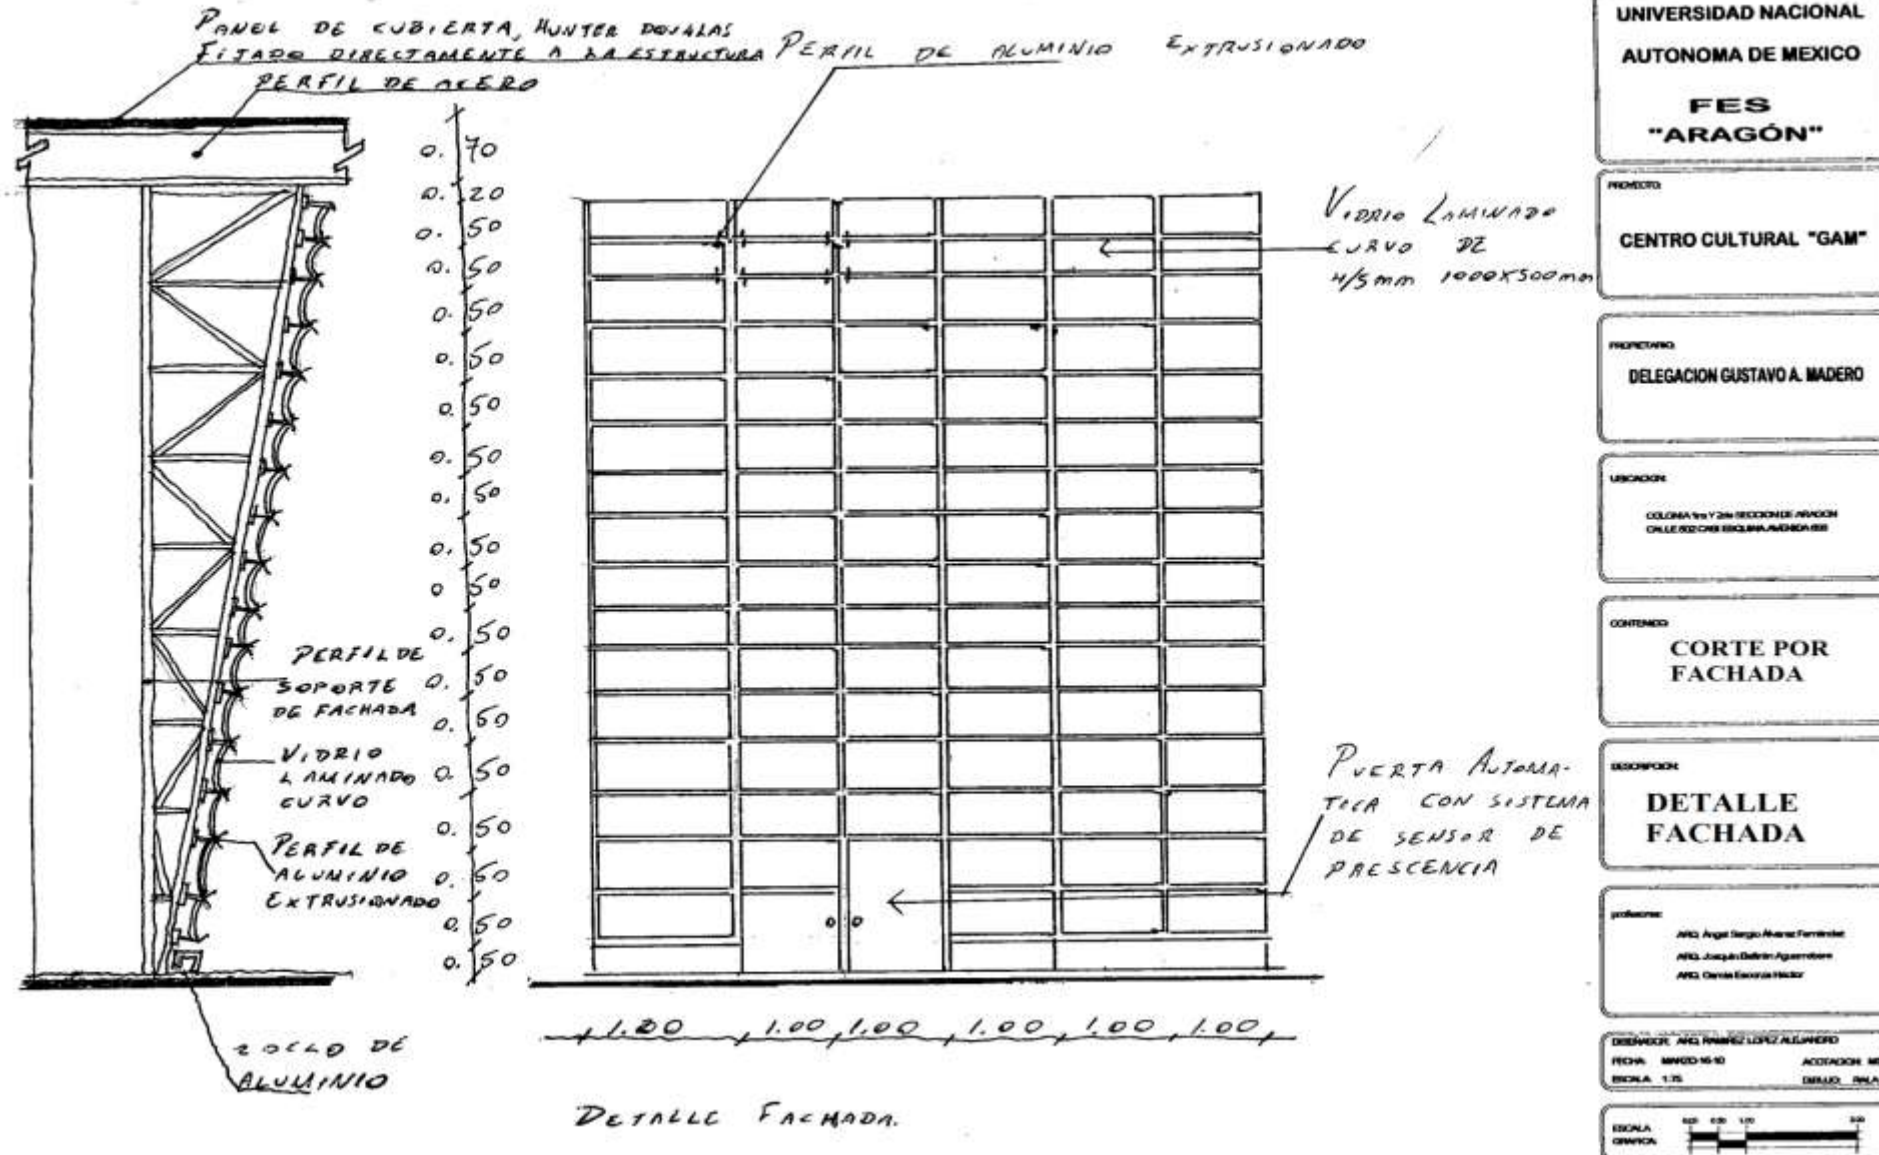 PANEL DE CUBIERTA, HUNTER DOUGLAS
FIJADO DIRECTAMENTE A LA ESTRUCTURA
PERFIL DE ACERO
PERFIL DE ALUMINIO EXTRUSIONADO
0.70
0.20
0.50
0.50
0.50
0.50
0.50
0.50
0.50
0.50
0 50
0.50
0.50
0.50
0.50
0.50
0.50
0.50
0.50
VIDRIO LAMINADO
CURVO DE
4/5mm 1000X500mm
PERFIL DE
SOPORTE
DE FACHADA
VIDRIO
LAMINADO
CURVO
PERFIL DE
ALUMINIO
EXTRUSIONADO
PUERTA AUTOMA-
TICA CON SISTEMA
DE SENSOR DE
PRESCENCIA
1.00 1.00 1.00 1.00 1.00
ZOCLO DE
ALUMINIO
DETALLE FACHADA.
UNIVERSIDAD NACIONAL
AUTONOMA DE MEXICO
FES
"ARAGÓN"
PROYECTO:
CENTRO CULTURAL "GAM"
PROPIETARIO:
DELEGACION GUSTAVO A. MADERO
UBICACION:
COLONIA 1ra Y 2da SECCION DE ARAGON
CONTENIDO:
CORTE POR
FACHADA
DESCRIPCION:
DETALLE
FACHADA
profesores:
ARQ. Ángel Sergio Álvarez Fernández
ARQ. Joaquín
ARQ. García Escorza Héctor
DISEÑADOR: ARQ. RAMIREZ LOPEZ ALEJANDRO
FECHA: MARZO-16-10
ESCALA: 1:75
DIBUJO:
ESCALA
GRAFICA